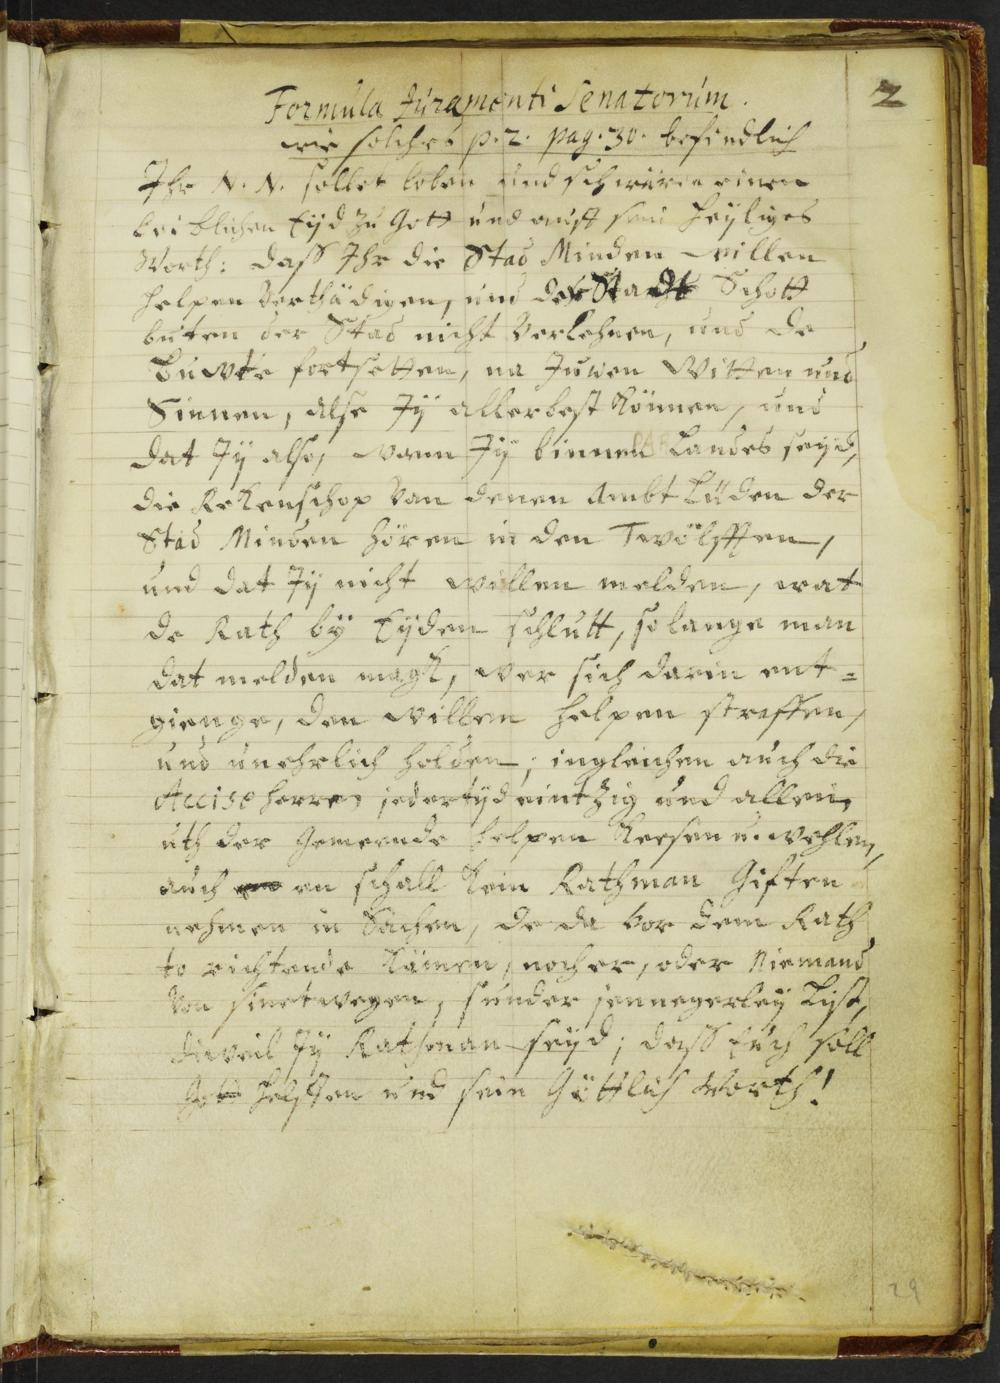 2
Formula Juramenti Senatorum.
wie solches p. 2. pag. 30. befindlich
Ihr N. N. sollet loben und schweren einen
leiblichen Eyd zu Gott und auff sein heyliges
Worth: dass Ihr die Stad Minden willen
helpen verthädigen, und der Stadt Schott
buten der Stad nicht verlehnen, und de
fortsetten, na Juwen Witten und
Sinnen, alse Jÿ allerbest können, und
dat Jÿ alse, wann Jÿ binnen Landes seyd,
die Rekenschop van denen Ambt Lüden der
Stad Minden hören in den Twölfften,
und dat Jÿ nicht willen melden, wat
de Rath bÿ Eÿden schlutt, solange man
dat melden magk, wer sich darin ent=
gienge, den willen helpen straffen,
und unehrlich holden; ingleichen auch die
Accise herren jedertÿd eintzig und allein
uth der Gemeende helpen keesen u. wehlen,
auch en schall kein Rathman Giften
nehmen in Sachen, de da vor dem Rath
to richtende kämen, noch er, oder Niemand
von sinetwegen, sunder jennegerleÿ List,
dieweil Jÿ Rathman seÿd; dass Euch soll
Gott helffen und sein Göttlich Worth!
29